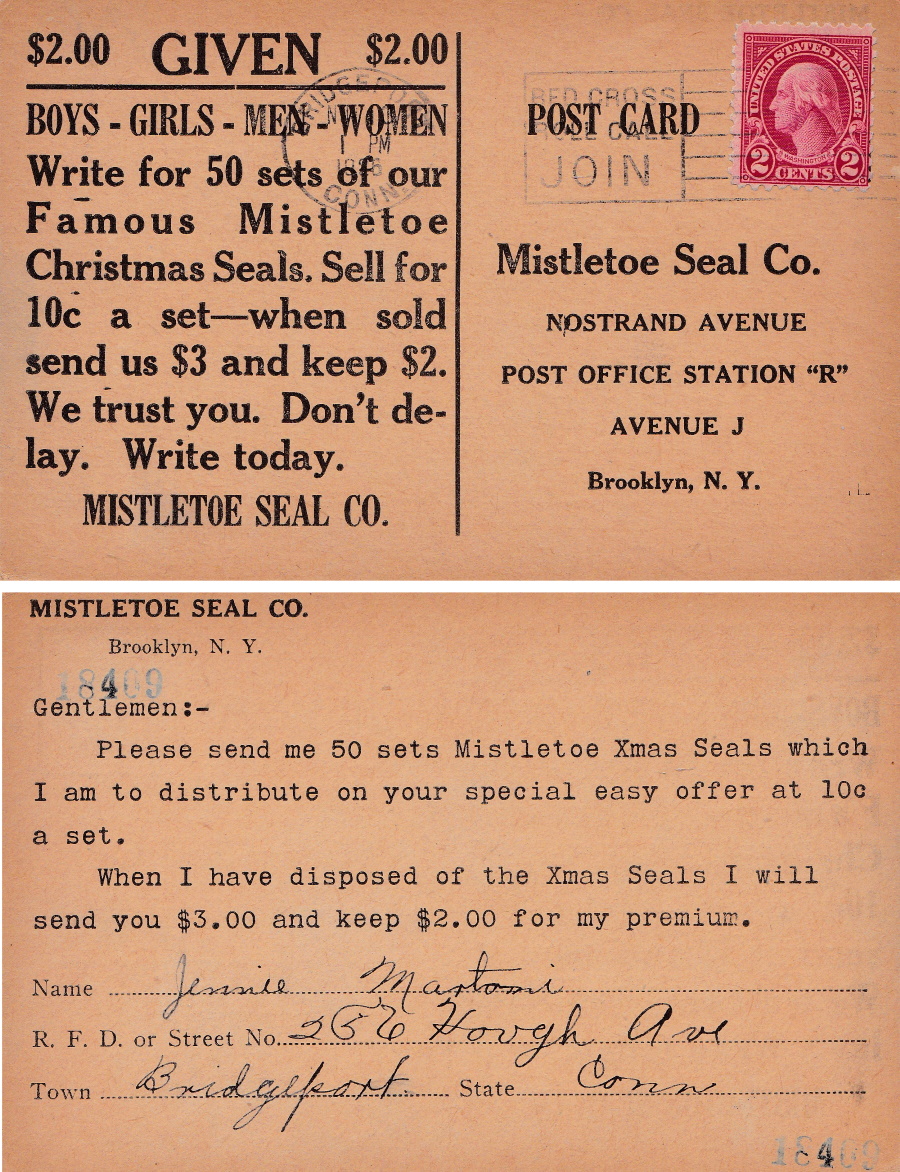 $2.00 GIVEN $2.00
BOYS - GIRLS - MEN - WOMEN
Write for 50 sets of our
Famous Mistletoe
Christmas Seals. Sell for
10c a set—when sold
send us $3 and keep $2.
We trust you. Don't de-
lay. Write today.
MISTLETOE SEAL CO.
BRIDGEPORT
1 PM
CONN.
RED CROSS
ROLL CALL
JOIN
POST CARD
UNITED STATES POSTAGE
WASHINGTON
2 CENTS 2
Mistletoe Seal Co.
NOSTRAND AVENUE
POST OFFICE STATION "R"
AVENUE J
Brooklyn, N. Y.
MISTLETOE SEAL CO.
Brooklyn, N. Y.
18409
Gentlemen:-
Please send me 50 sets Mistletoe Xmas Seals which
I am to distribute on your special easy offer at 10c
a set.
When I have disposed of the Xmas Seals I will
send you $3.00 and keep $2.00 for my premium.
Name Jennie Martoni
R. F. D. or Street No. Hough Ave
Town Bridgeport State Conn
18409